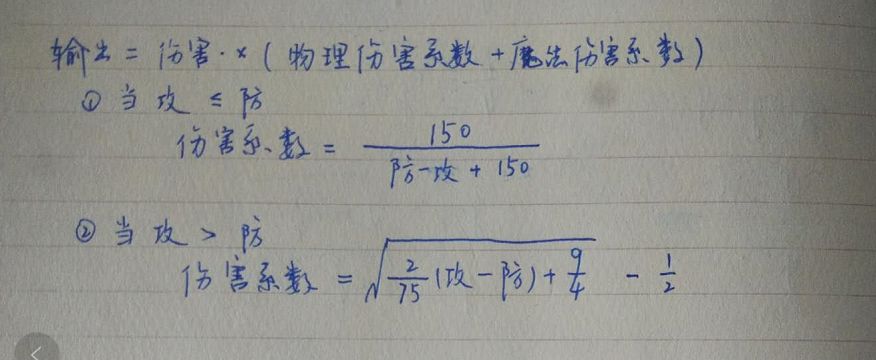 输出 = 伤害·×(物理伤害系数+魔法伤害系数)
① 当攻 ≤ 防
伤害系数 = 150 / (防-攻+150)
② 当攻 > 防
伤害系数 = √(2/75(攻-防)+9/4) - 1/2